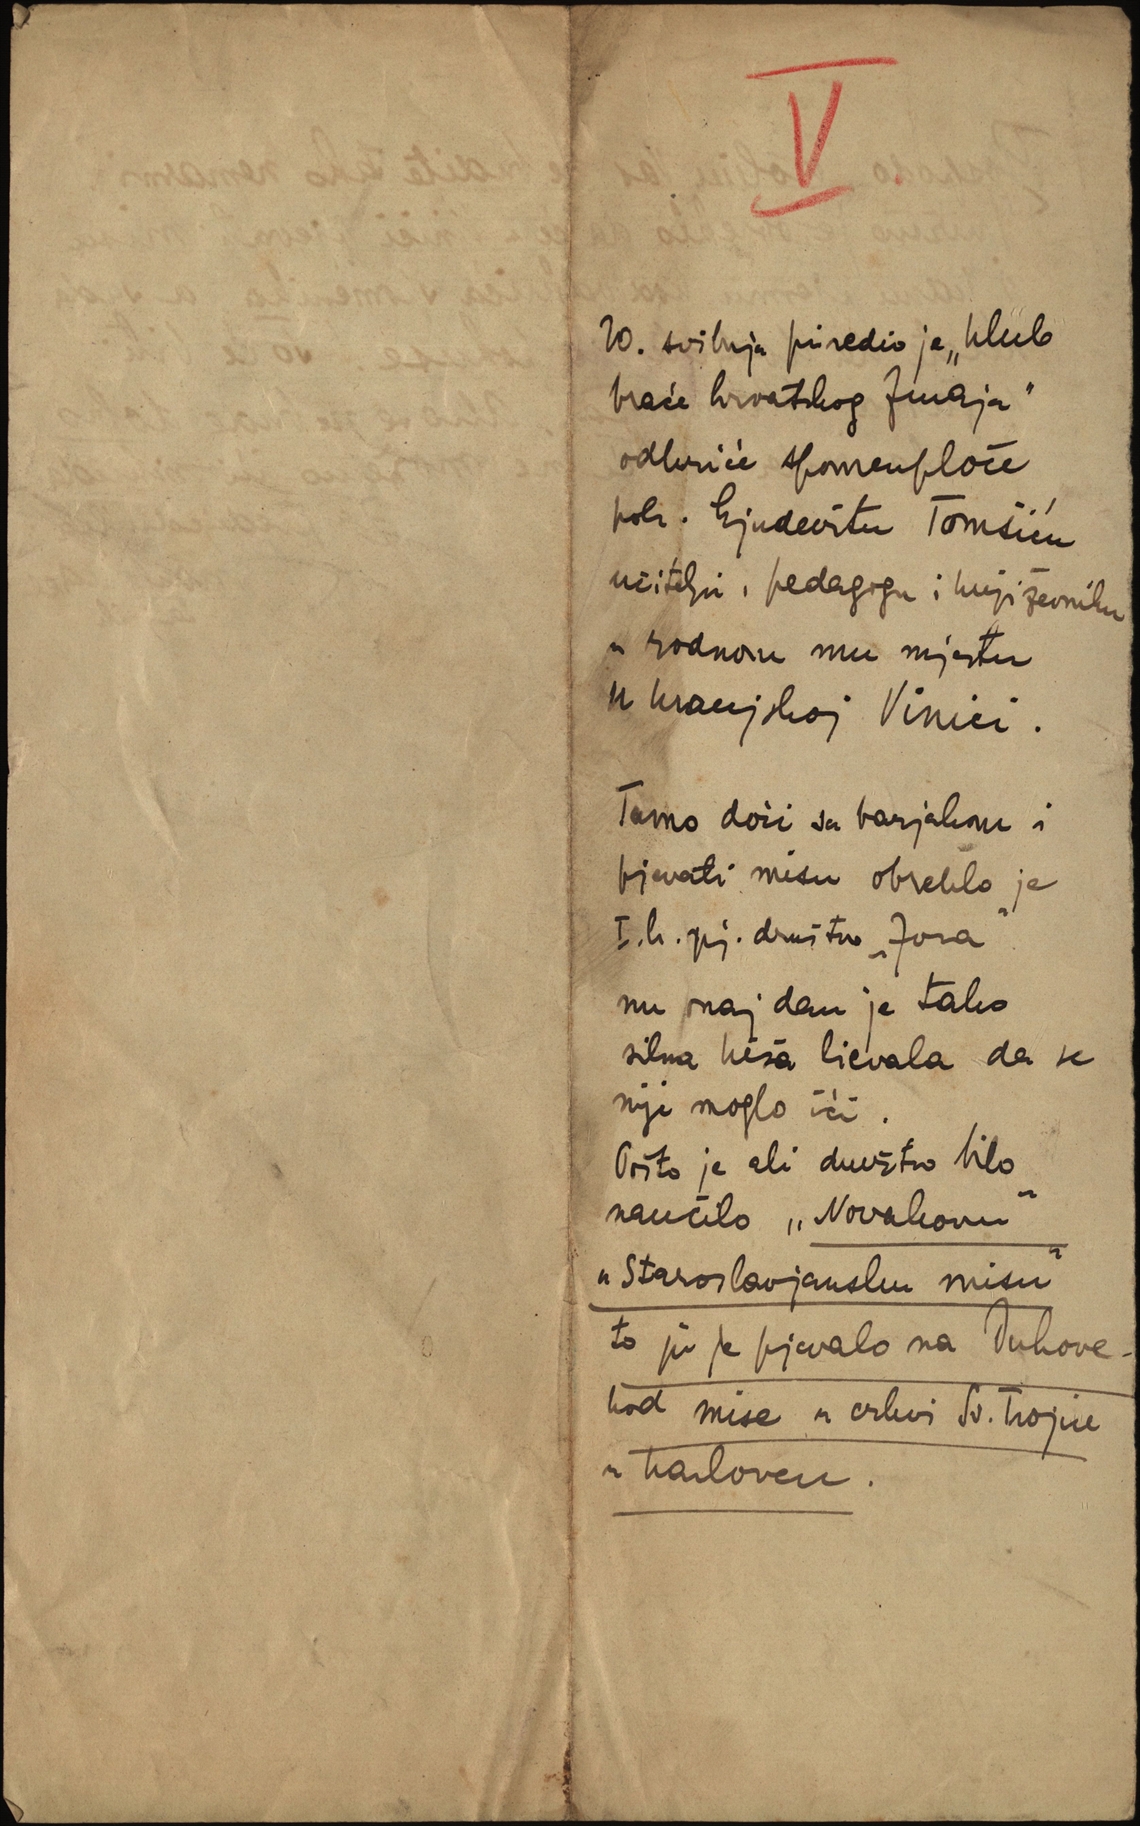 V
20. svibnja priredio je „klub
braće hrvatskog Zmaja"
odkriće spomenploče
pok. Ljudevitu Tomšiću
učitelju, pedagogu i književniku
u rodnom mu mjestu
u kranjskoj Vinici.
Tamo doći sa barjakom i
pjevati misu obreklo je
I. h. pj. društvo „Zora"
nu onaj dan je tako
silna kiša lievala da se
nije moglo ići.
Pošto je ali društvo bilo
naučilo „Novakovu"
„Staroslavjansku misu"
to ju je pjevalo na Duhove-
kod mise u crkvi Sv. Trojice
u Karlovcu.